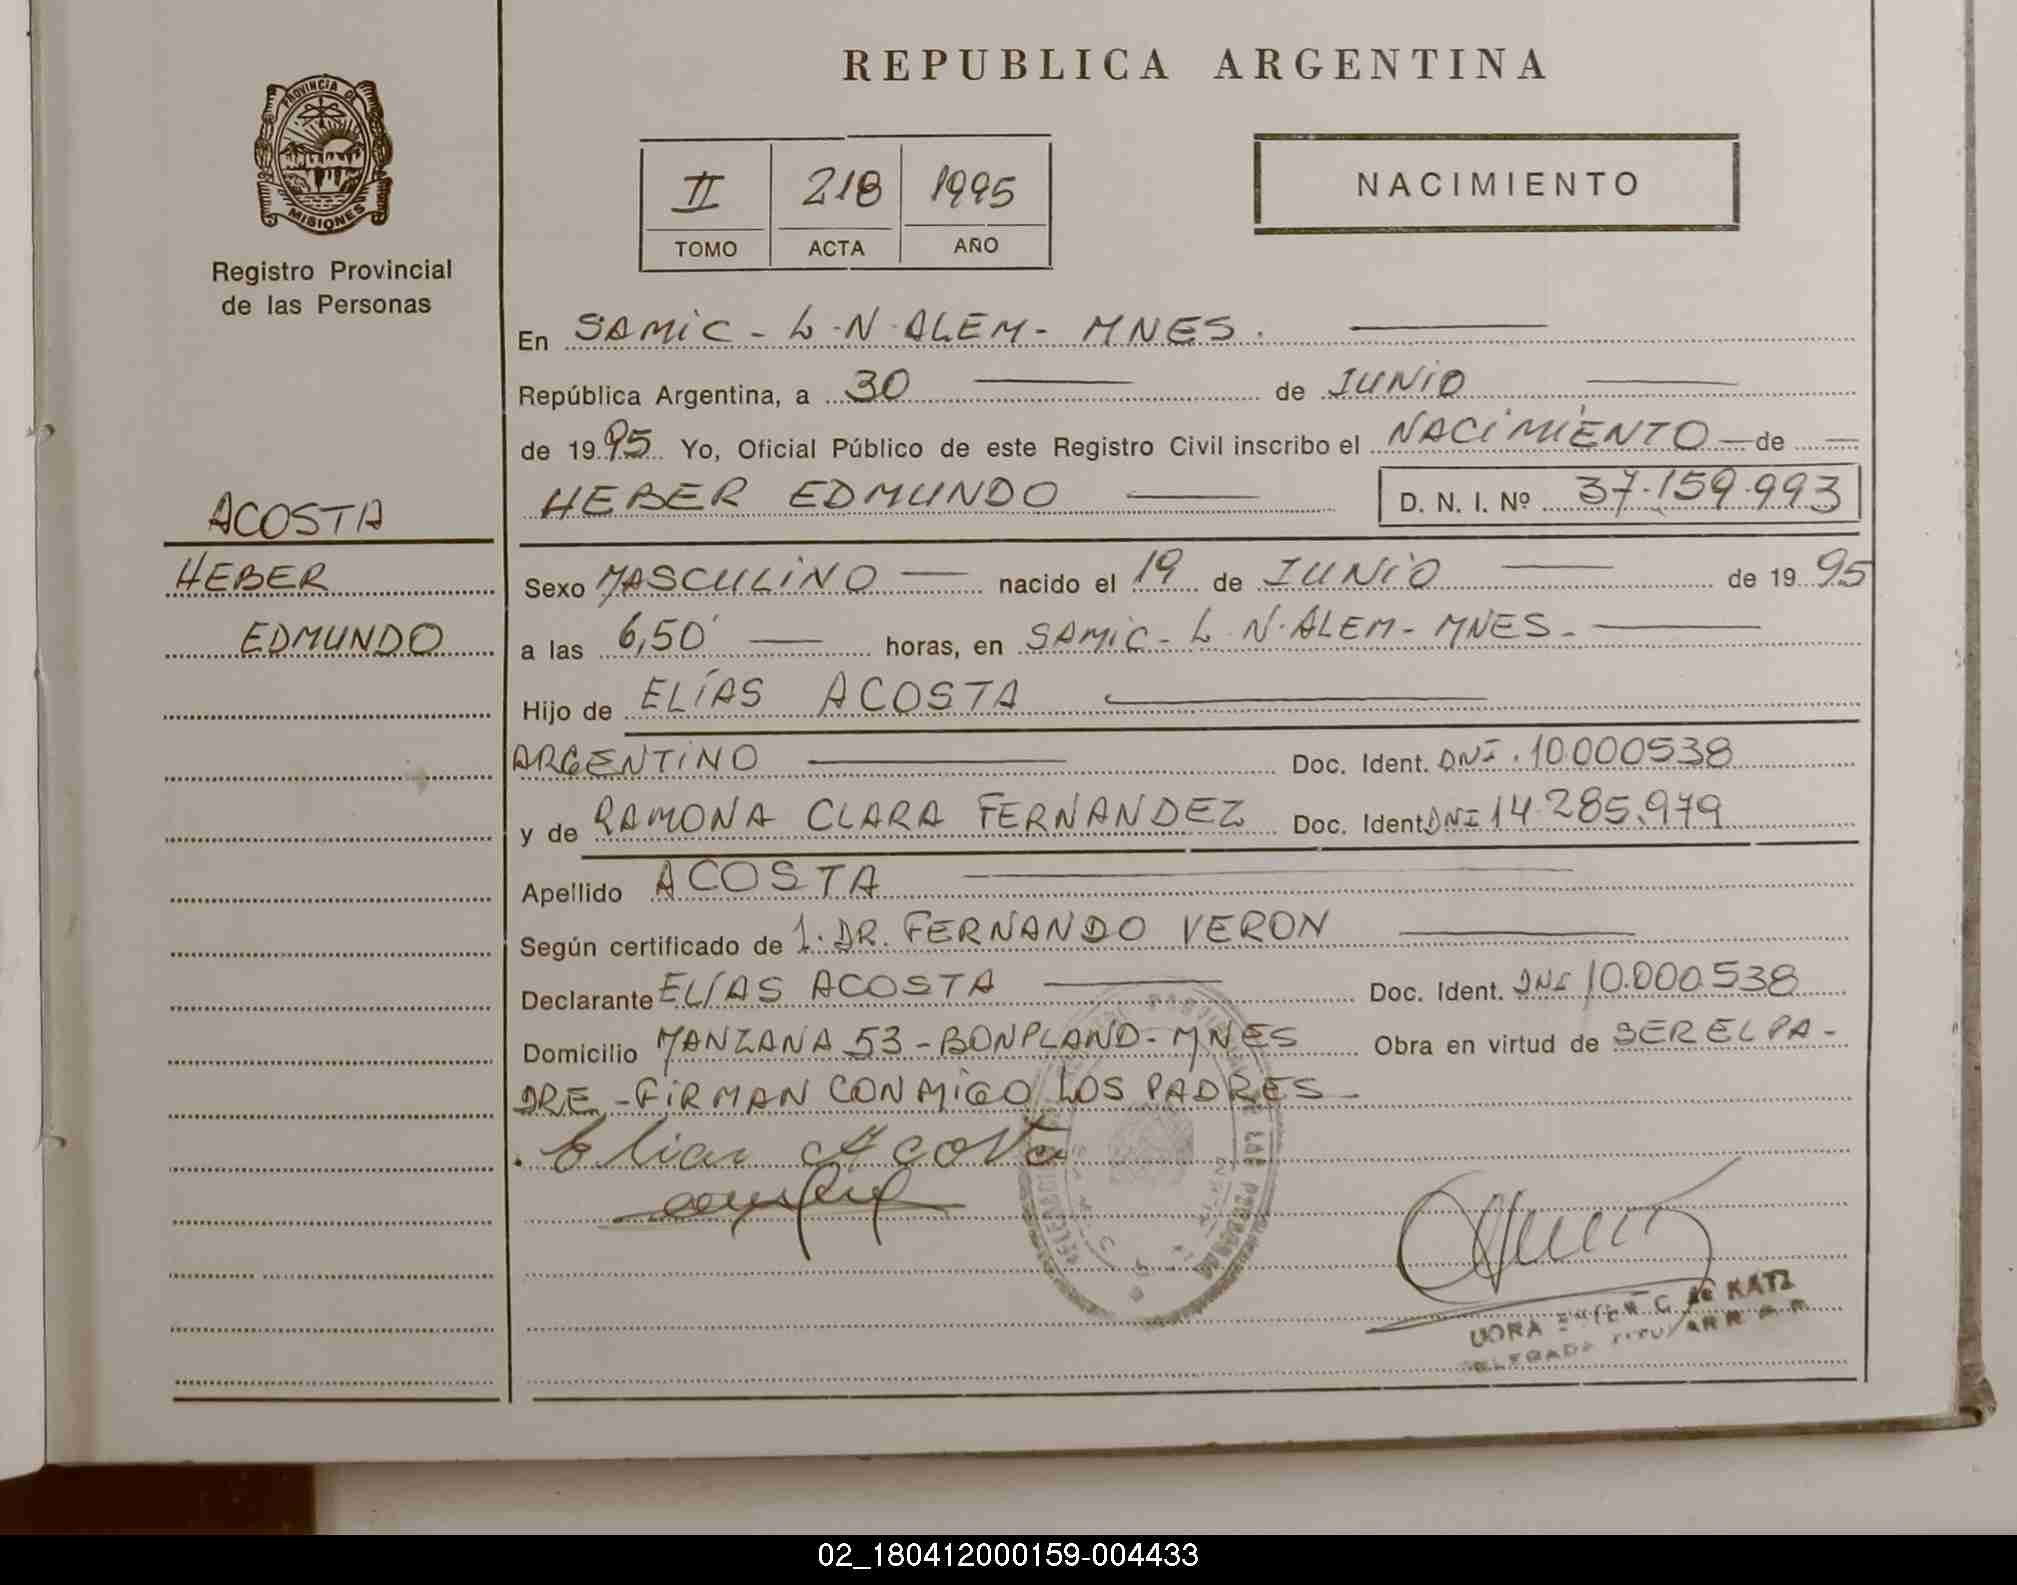 REPUBLICA ARGENTINA
PROVINCIA DE
MISIONES
Registro Provincial
de las Personas
II 218 1995
TOMO ACTA AÑO
NACIMIENTO
En SAMIC - L.N. ALEM - MNES.
República Argentina, a 30 de JUNIO
de 1995 Yo, Oficial Público de este Registro Civil inscribo el NACIMIENTO de
HEBER EDMUNDO D. N. I. Nº 37.159.993
ACOSTA
HEBER
EDMUNDO
Sexo MASCULINO nacido el 19 de JUNIO de 1995
a las 6,50' horas, en SAMIC - L.N. ALEM - MNES -
Hijo de ELÍAS ACOSTA
ARGENTINO Doc. Ident. DNI. 10.000538
y de RAMONA CLARA FERNANDEZ Doc. Ident. DNI 14.285.979
Apellido ACOSTA
Según certificado de 1. DR. FERNANDO VERON
Declarante ELÍAS ACOSTA Doc. Ident. DNI 10.000.538
Domicilio MANZANA 53 - BONPLAND - MNES Obra en virtud de SER EL PA-
DRE - FIRMAN CONMIGO LOS PADRES -
Elias Acosta
DE LAS PERSONAS
DE KATZ
02_180412000159-004433